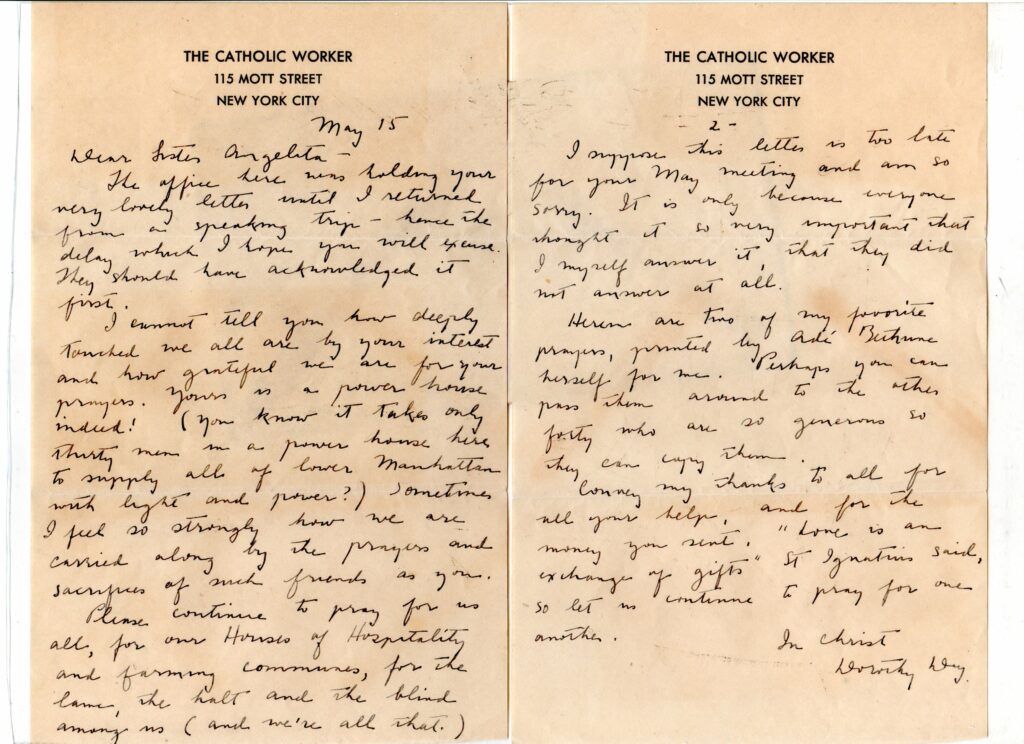 THE CATHOLIC WORKER
115 MOTT STREET
NEW YORK CITY
May 15
Dear Sister Angelita –
The office here was holding your
very lovely letter until I returned
from a speaking trip – hence the
delay which I hope you will excuse.
They should have acknowledged it
first.
I cannot tell you how deeply
touched we all are by your interest
and how grateful we are for your
prayers. Yours is a power house
indeed! (You know it takes only
thirty men in a power house here
to supply all of lower Manhattan
with light and power?) Sometimes
I feel so strongly how we are
carried along by the prayers and
sacrifices of such friends as you.
Please continue to pray for us
all, for our Houses of Hospitality
and farming communes, for the
lame, the halt and the blind
among us (and we're all that.)
THE CATHOLIC WORKER
115 MOTT STREET
NEW YORK CITY
- 2 -
I suppose this letter is too late
for your May meeting and am so
sorry. It is only because everyone
thought it so very important that
I myself answer it, that they did
not answer at all.
Herein are two of my favorite
prayers, printed by Adé Bethune
herself for me. Perhaps you can
pass them around to the other
forty who are so generous so
they can copy them.
Convey my thanks to all for
all your help, and for the
money you sent. "Love is an
exchange of gifts" St Ignatius said,
so let us continue to pray for one
another.
In Christ
Dorothy Day.